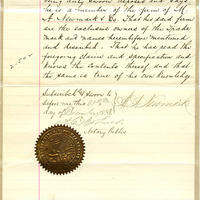 being duly sworn deposes and says
he is a member of the firm of
A. Newmark & Co. That his said firm
are the exclusive owners of the Trade
mark and names hereinbefore mentioned
and described. That he has read the
foregoing claim and specification and
knows the contents thereof, and that
the same is true of his own knowledge
Subscribed & Sworn to
before me this
day of
Notary Public
Newmark